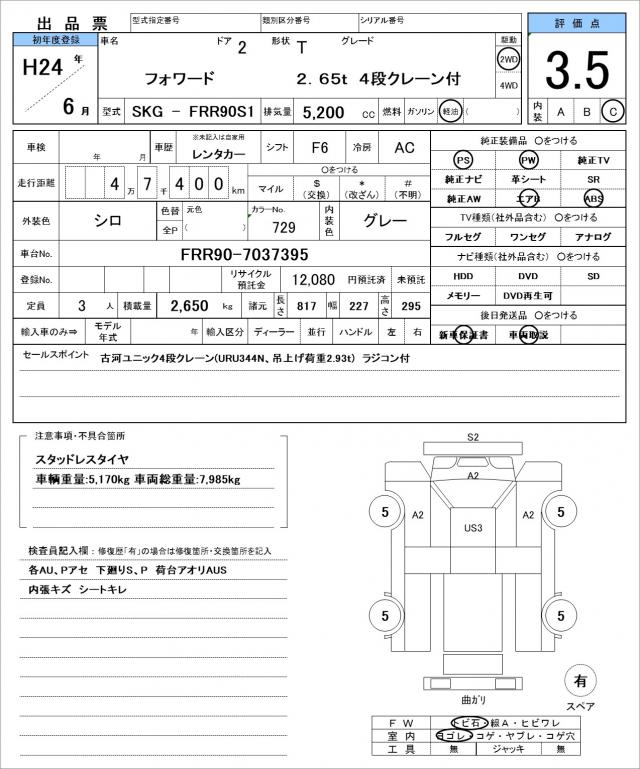 出品票 型式指定番号 類別区分番号 シリアル番号
初年度登録 車名 ドア 2 形状 T グレード 駆動 評価点
H24年 フォワード 2.65t 4段クレーン付 2WD 3.5
6月 4WD
型式 SKG - FRR90S1 排気量 5,200 cc 燃料 ガソリン 軽油 ( ) 内装 A B C
車検 年 月 車歴 ※未記入は自家用 レンタカー シフト F6 冷房 AC 純正装備品 〇をつける
PS PW 純正TV
走行距離 4万7千400km 〇をつける
マイル $(交換) *(改ざん) #(不明)
純正ナビ 革シート SR
純正AW エアB ABS
外装色 シロ 色替 元色 カラーNo. 内装色 グレー
全P ( ) 729
TV種類(社外品含む) 〇をつける
フルセグ ワンセグ アナログ
車台No. FRR90-7037395 ナビ種類(社外品含む) 〇をつける
登録No. リサイクル預託金 12,080 円預託済 未預託 HDD DVD SD
定員 3 人 積載量 2,650 kg 諸元 長さ 817 幅 227 高さ 295 メモリー DVD再生可
後日発送品 〇をつける
輸入車のみ⇒ モデル年式 年 輸入区分 ディーラー 並行 ハンドル 左 右 新車保証書 車両取説
セールスポイント 古河ユニック4段クレーン(URU344N、吊上げ荷重2.93t) ラジコン付
注意事項・不具合箇所
スタッドレスタイヤ
車輌重量:5,170kg 車両総重量:7,985kg
検査員記入欄：修復歴「有」の場合は修復箇所・交換箇所を記入
各AU、Pアセ 下廻りS、P 荷台アオリAUS
内張キズ シートキレ
S2
A2
5 A2 A2 5
US3
5 5
曲ガリ
有
スペア
FW トビ石・線A・ヒビワレ
室内 ヨゴレ・コゲ・ヤブレ・コゲ穴
工具 無 ジャッキ 無